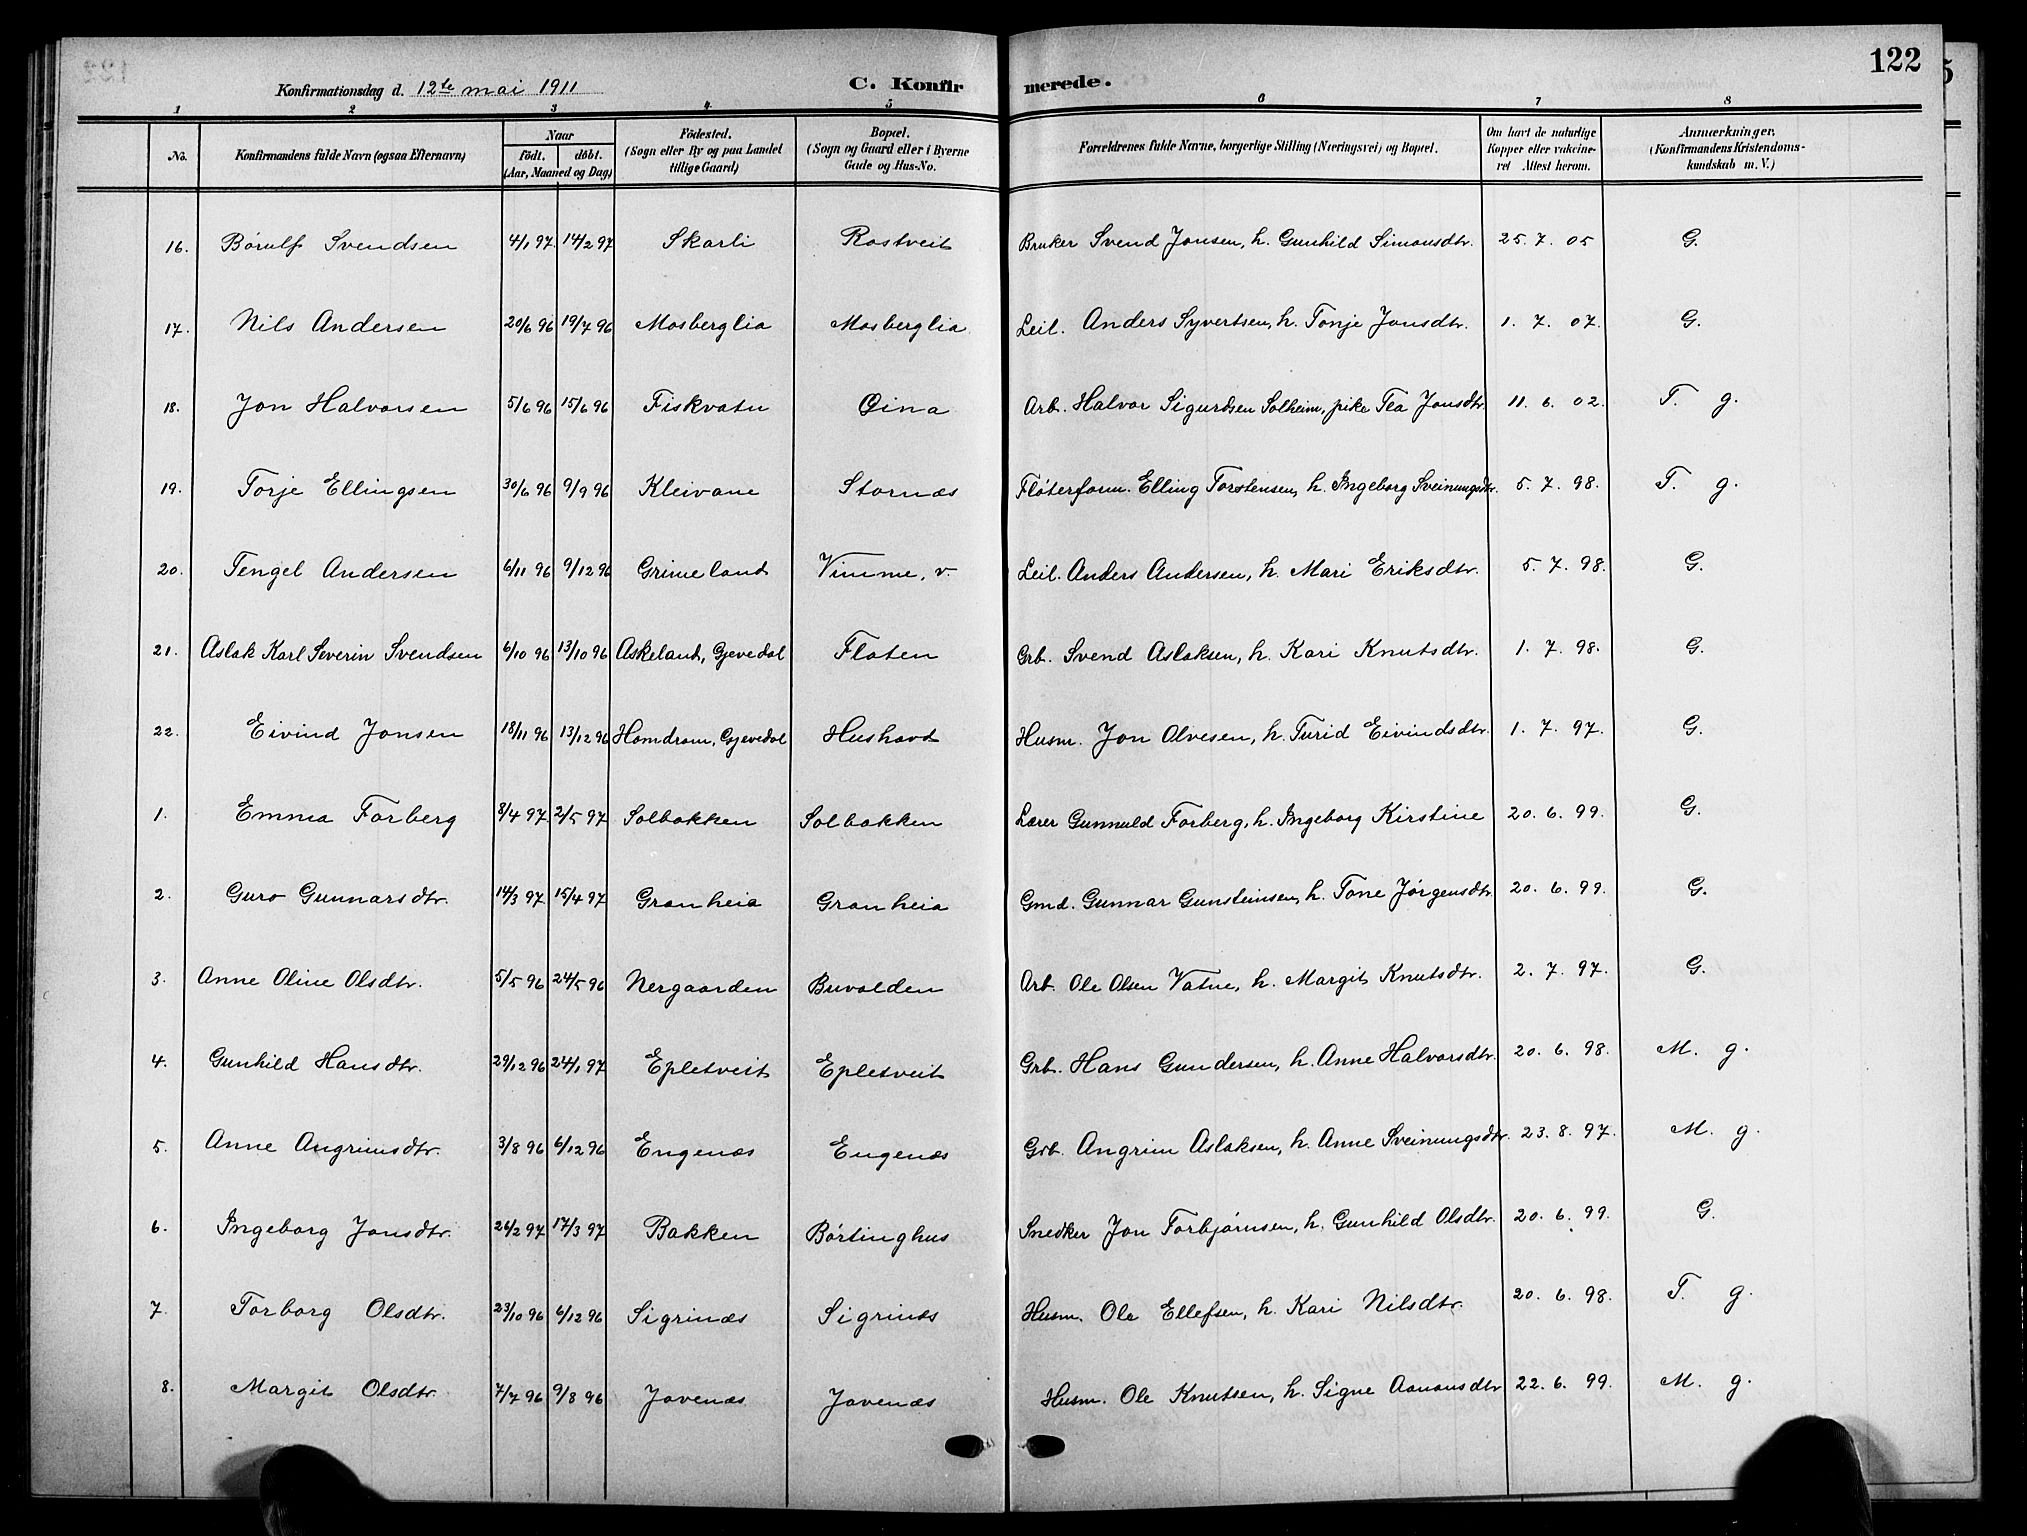 122
Konfirmationsdag d. 12te mai 1911 C. Konfirmerede.
1 2 3 4 5 6 7 8
No. Konfirmandens fulde Navn (ogsaa Efternavn) Naar født. døbt. (Aar, Maaned og Dag) Fødested. (Sogn eller By og paa Landet tillige Gaard) Bopæl. (Sogn og Gaard eller i Byerne Gade og Hus-No. Forældrenes fulde Navne, borgerlige Stilling (Næringsvei) og Bopæl. Om havt de naturlige Kopper eller vakcineret Attest herom. Anmærkninger. (Konfirmandens Kristendomskundskab m. V.)
16. Børulf Svendsen 4/1 97 14/2 97 Skarli Rostveit Bruker Svend Jonsen, h. Gunhild Simonsdtr. 25. 7. 05 G.
17. Nils Andersen 20/6 96 19/7 96 Mosberglia Mosberglia Leil. Anders Syvertsen, h. Tonje Jonsdtr. 1. 7. 07. G.
18. Jon Halvorsen 5/6 96 15/6 96 Fiskvatn Øina Arb. Halvor Sigurdsen Solheim, pike Tea Jonsdtr. 11. 6. 02. T. g.
19. Torje Ellingsen 30/6 96 9/9 96 Kleivane Stornæs Fløterform. Elling Torstensen, h. Ingeborg Sveinungsdtr. 5. 7. 98. T. g.
20. Tengel Andersen 6/11 96 9/12 96 Grimeland Vimme, v. Leil. Anders Andersen, h. Mari Eriksdtr. 5. 7. 98. G.
21. Aslak Karl Severin Svendsen 6/10 96 13/10 96 Askeland, Gjevedal Flaten Grb. Svend Aslaksen, h. Kari Knutsdtr. 1. 7. 98. G.
22. Eivind Jonsen 18/11 96 13/12 96 Homdrom, Gjevedal Hushovd Husm. Jon Alvesen, h. Turid Eivindsdtr. 1. 7. 97. G.
1. Emma Forberg 8/4 97 2/5 97 Solbakken Solbakken Lærer Gunnuld Forberg, h. Ingeborg Kirstine 20. 6. 99. G.
2. Guro Gunnarsdtr. 14/3 97 15/4 97 Granheia Granheia Gmd. Gunnar Gunsteinsen, h. Tone Jørgensdtr. 20. 6. 99. G.
3. Anne Oline Olsdtr. 5/5 96 24/5 96 Nergaarden Buvolden Arb. Ole Olsen Vatne, h. Margit Knutsdtr. 2. 7. 97. G.
4. Gunhild Hansdtr. 29/12 96 24/1 97 Epletveit Epletveit Grb. Hans Gundersen, h. Anne Halvorsdtr. 20. 6. 98. M. g.
5. Anne Angrimsdtr. 3/8 96 6/12 96 Engenæs Engenæs Grb. Angrim Aslaksen, h. Anne Sveinungsdtr. 23. 8. 97. M. g.
6. Ingeborg Jonsdtr. 26/2 97 17/3 97 Bakken Børtinghus Snedker Jon Torbjørnsen, h. Gunhild Olsdtr. 20. 6. 99. G.
7. Torborg Olsdtr. 23/10 96 6/12 96 Sigrinæs Sigrinæs Husm. Ole Ellefsen, h. Kari Nilsdtr. 20. 6. 98. T. g.
8. Margit Olsdtr. 7/7 96 9/8 96 Jovenæs Jovenæs Husm. Ole Knutsen, h. Signe Aanonsdtr 22. 6. 99. M. g.